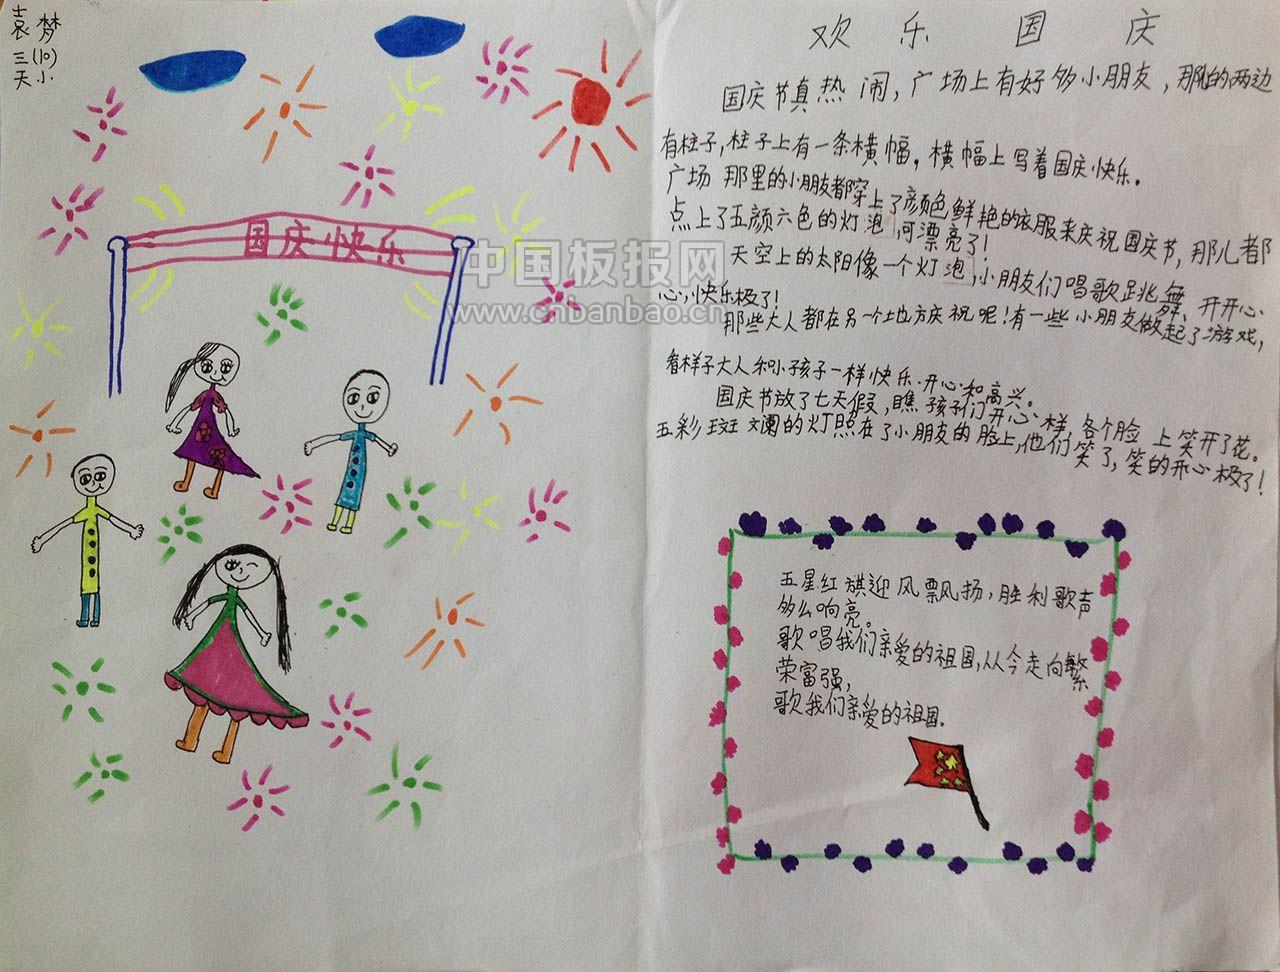 袁梦
三(10)
天小
国庆快乐
中国板报网
www.cnbanbao.cn
欢乐国庆
国庆节真热闹，广场上有好多小朋友，那的两边
有柱子，柱子上有一条横幅，横幅上写着国庆快乐。
广场那里的小朋友都穿上了颜色鲜艳的衣服来庆祝国庆节，那儿都
点上了五颜六色的灯泡，何漂亮了！
天空上的太阳像一个灯泡，小朋友们唱歌跳舞、开开心
心，快乐极了！
那些大人都在另一个地方庆祝呢！有一些小朋友做起了游戏，
看样子大人和小孩子一样快乐、开心和高兴。
国庆节放了七天假，瞧孩子们开心样，各个脸上笑开了花。
五彩斑斓的灯照在了小朋友的脸上，他们笑了，笑的开心极了！
五星红旗迎风飘扬，胜利歌声
多么响亮。
歌唱我们亲爱的祖国，从今走向繁
荣富强，
歌我们亲爱的祖国.